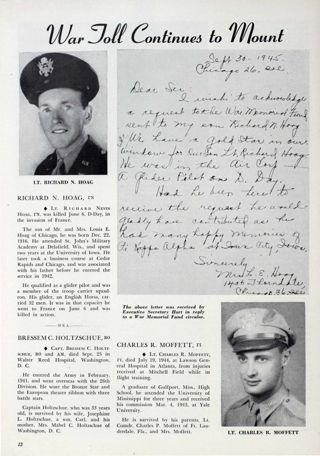 War Toll Continues to Mount
LT. RICHARD N. HOAG
RICHARD N. HOAG, ΓΝ
♦ LT. RICHARD NEVIN
HOAG, ΓΝ, was killed June 6, D-Day, in
the invasion of France.
The son of Mr. and Mrs. Louis E.
Hoag of Chicago, he was born Dec. 22,
1916. He attended St. John's Military
Academy at Delafield, Wis., and spent
two years at the University of Iowa. He
later took a business course at Cedar
Rapids and Chicago, and was associated
with his father before he entered the
service in 1942.
He qualified as a glider pilot and was
a member of the troop carrier squad-
ron. His glider, an English Horsa, car-
ried 32 men. It was in that capacity he
went to France on June 6 and was
killed in action.
ΠΚΑ
BRESSEM C. HOLTZSCHUE, ΒΟ
♦ CAPT. BRESSEM C. HOLTZ-
SCHUE, ΒΟ and ΑΜ, died Sept. 25 in
Walter Reed Hospital, Washington,
D. C.
He entered the Army in February,
1941, and went overseas with the 26th
Division. He wore the Bronze Star and
the European theater ribbon with three
battle stars.
Captain Holtzschue, who was 33 years
old, is survived by his wife, Josephine
L. Holtzschue, a son, Carl, and his
mother, Mrs. Mabel C. Holtzschue of
Washington, D. C.
12
Sept 30-1945.
Chicago 26, Ill
Dear Sir:
I wish to acknowledge
a request to the War Memorial Fund
sent to my son Richard N. Hoag
We have a Gold Star in our
window for our son Lt. Richard Hoag
He was in the Air Corp—
A Glider Pilot on D. Day
Had he been here to
receive the request he would
gladly have contributed as he
had many happy memories of
Pi Kappa Alpha at Iowa City Iowa.
Sincerely
Mrs L. E. Hoag
Thorndale
Chicago 26 Ill
The above letter was received by
Executive Secretary Hart in reply
to a War Memorial Fund circular.
CHARLES R. MOFFETT, ΓΙ
♦ LT. CHARLES R. MOFFETT,
ΓΙ, died July 19, 1944, at Lawson Gen-
eral Hospital in Atlanta, from injuries
received at Mitchell Field while in
flight training.
A graduate of Gulfport, Miss., High
School, he attended the University of
Mississippi for three years and received
his commission Mar. 4, 1943, at Yale
University.
He is survived by his parents, Lt.
Comdr. Charles P. Moffett of Ft. Lau-
derdale, Fla., and Mrs. Moffett.
LT. CHARLES R. MOFFETT